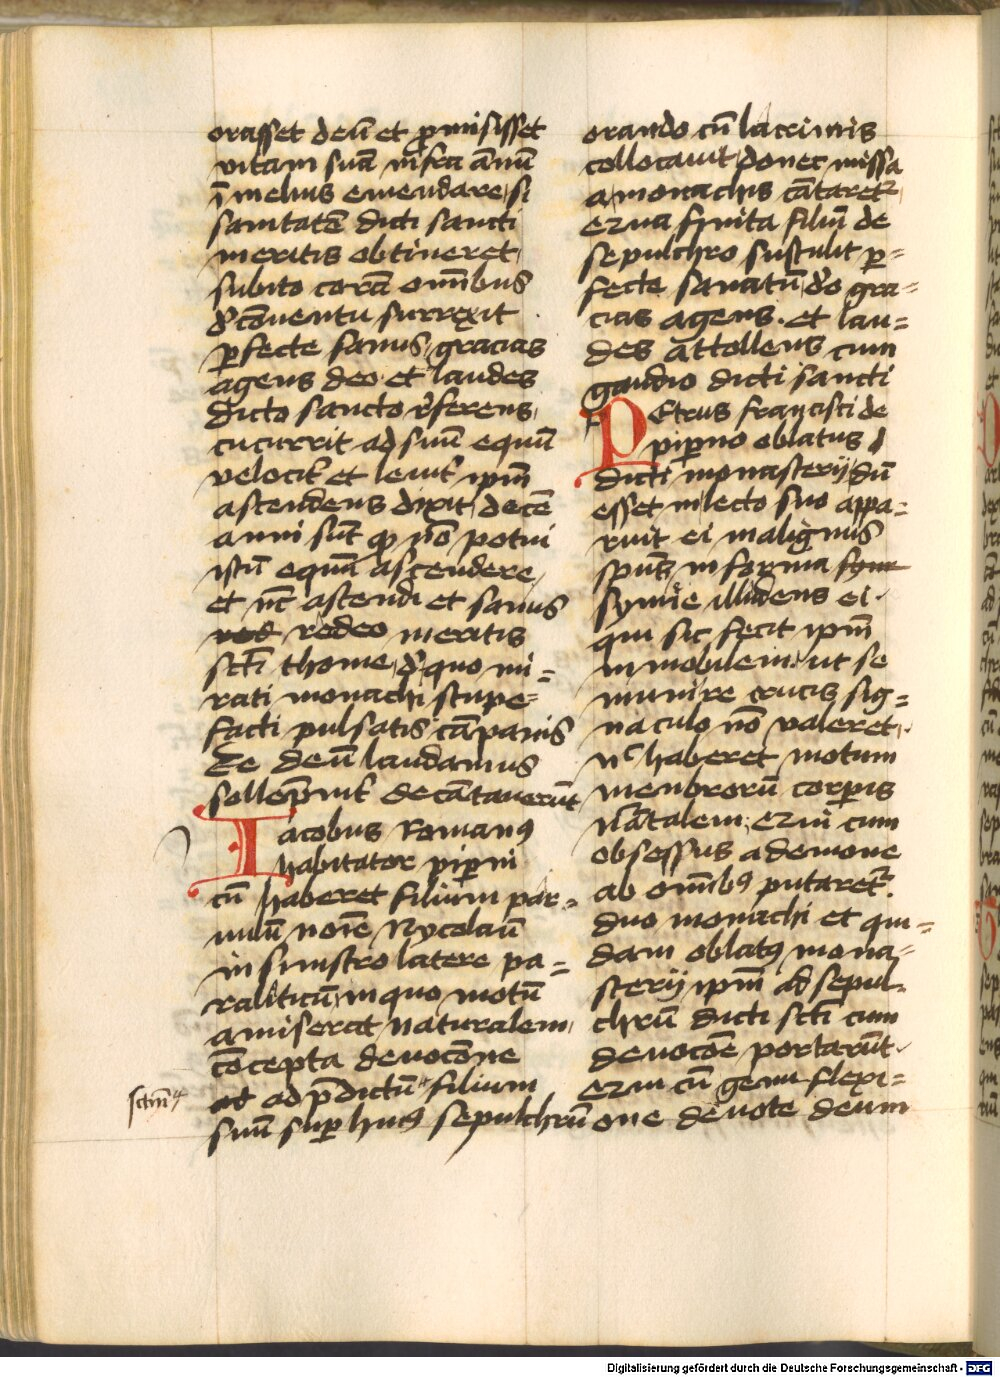 orasset deū et ꝓmisisset
vitam suā infra annū
ī melius emendare si
sanitatē dicti sancti
meritis obtineret
subito corā omībus
d' cōuentu surrexit
ꝑfecte sanus gracias
agens deo et laudes
dicto sancto r'ferens
cucurrit ad suū equū
velocit' et leuit' ipm̄
ascendens dixit decē
anni sūt qꝫ nō potui
istū equū ascendere
et nūc ascendi et sanus
redeo meritis
scti thome d' quo mi=
rati monachi stupe=
facti pulsatis cāpanis
Te deū laudamus
sollēpnit' decātauerūt
Iacobus Romanꝰ
habitator piꝑni
cū haberet filium par=
uulū noīe Nycolaū
in sinistro latere pa=
raliticū in quo motū
amiserat naturalem
cōcepta deuocōne
ad p̄dictū filium
suū suꝑ huiꝰ sepulchrū
orando cū lacrimis
collocauit donec missa
a monachis cātaretᷣ
qua finita filiū de
sepulchro sustulit ꝑ=
fecte sanatū d'o gra=
cias agens et lau=
des attollens cum
gaudio dicti sancti
Petrus francisci de
piꝑno oblatus
dicti monasterij dū
esset in lecto suo appa=
ruit ei malignus
spūs in forma
symie illudens ei
qui sic fecit ipm̄
inmobilem ut se
munire crucis sig=
naculo nō valeret
nc haberet motum
membrorū corꝑis
nātalem cum
obsessus a demone
ab omībꝰ putaretᷣ
duo monachi et qui=
dam oblatꝰ mona=
sterij ipm̄ ad sepul=
chrū dicti scti cum
deuocōe portarūt
cū genu flexi=
one deuote deum